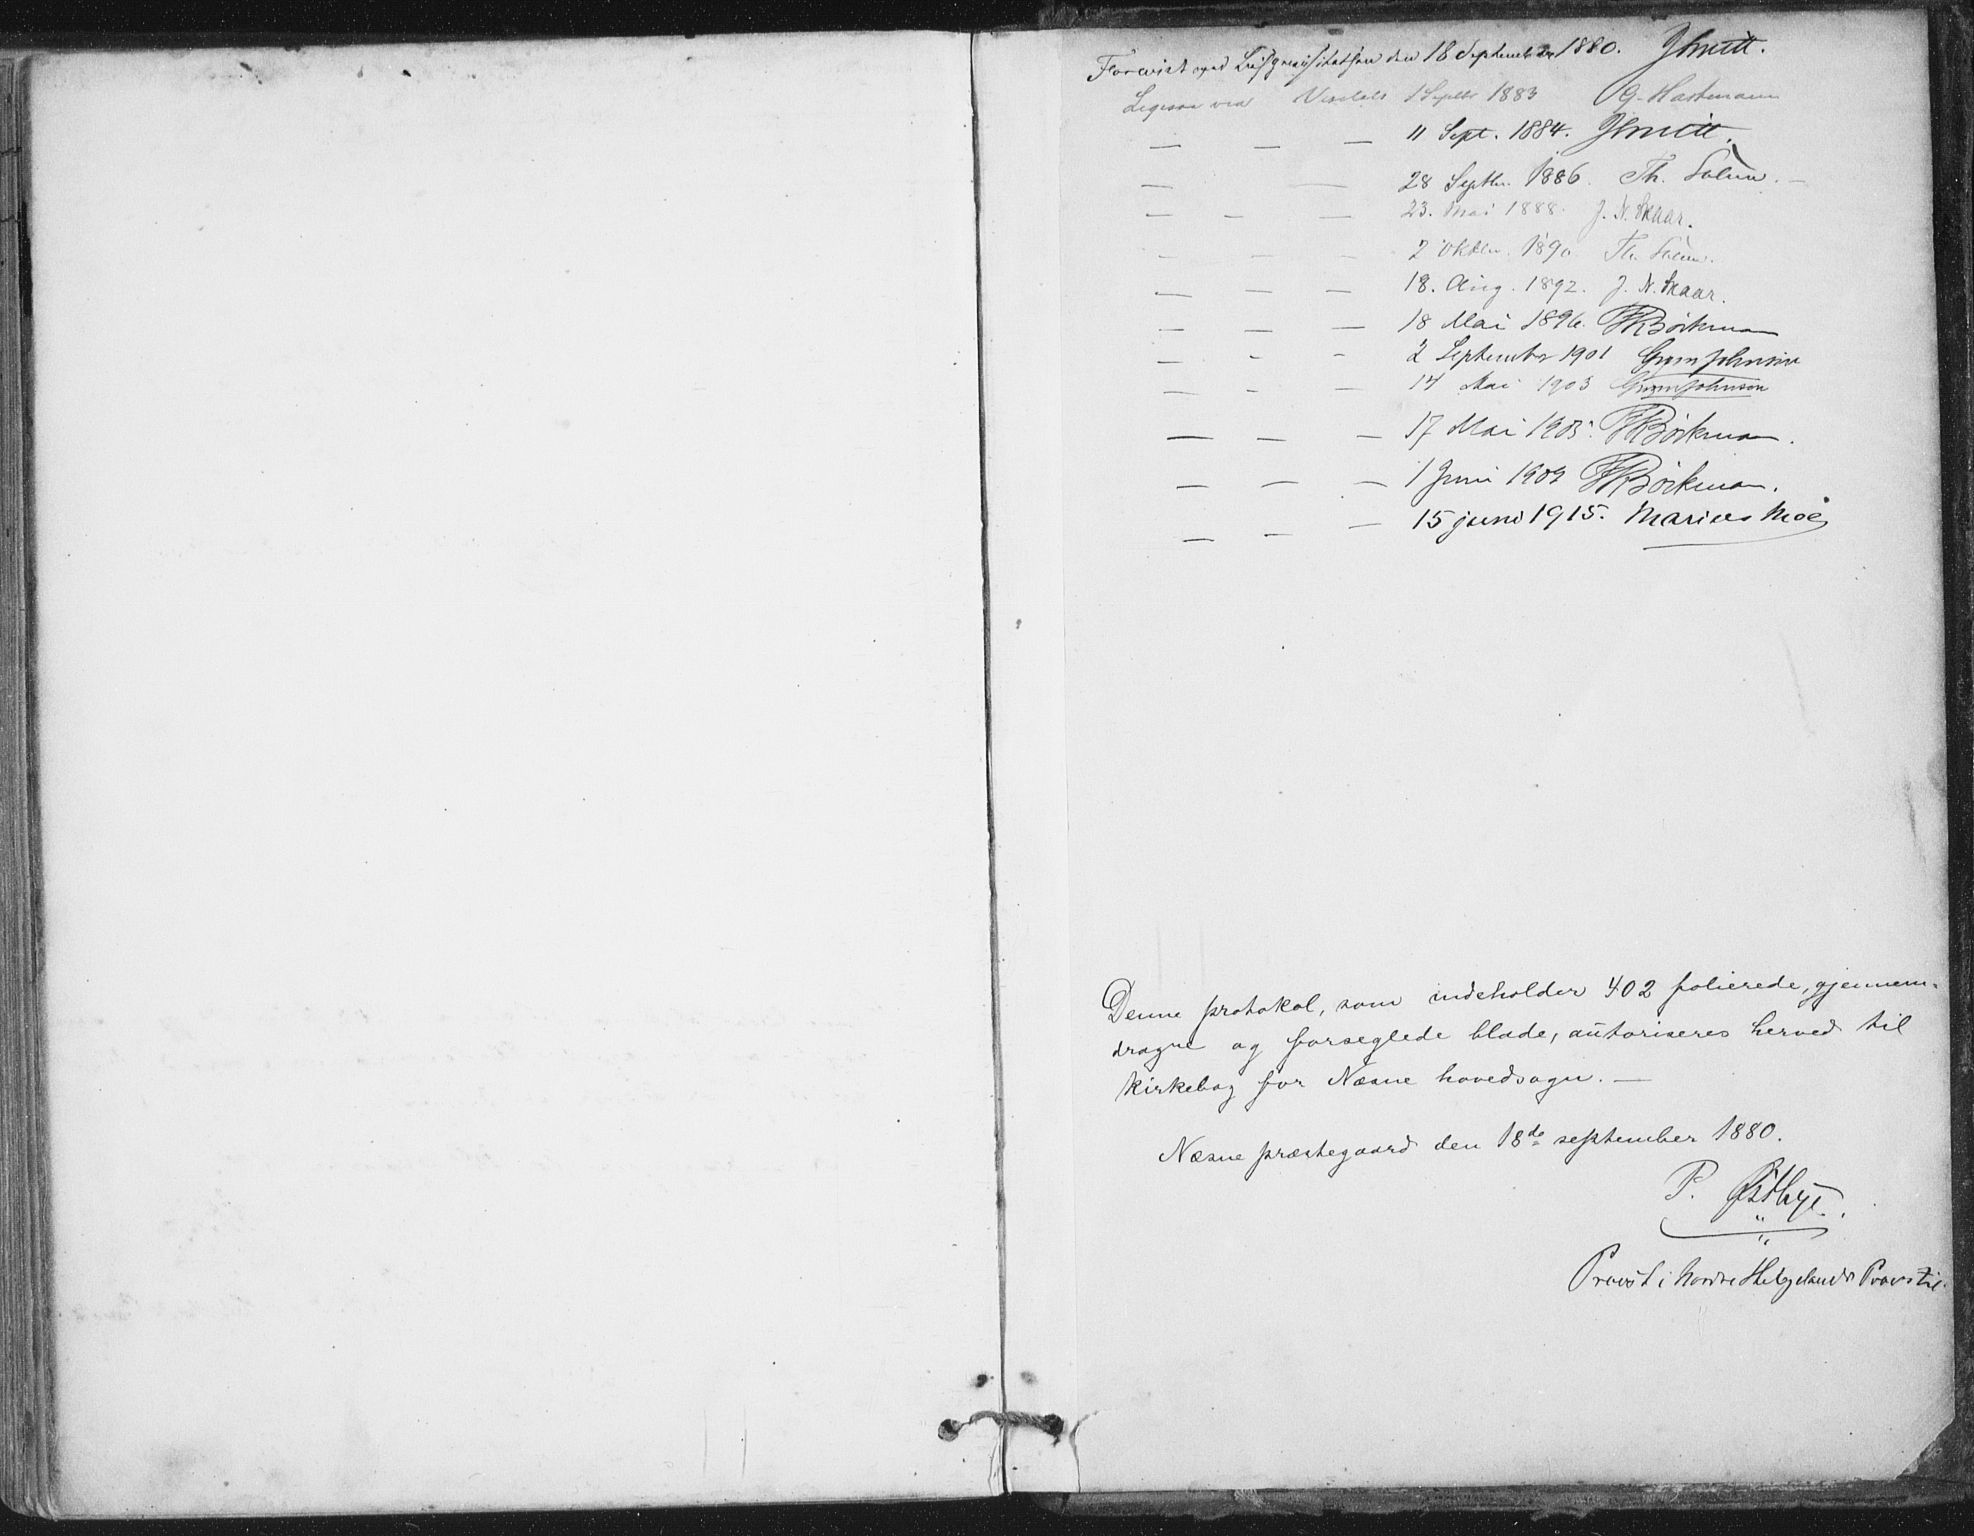 Forevist ved den 18 September 1880. JSmitt.
Ligesaa ved Visitats 1 Septbr 1883 G. Hartmann
— — — 11 Sept. 1884. JSmitt.
— — 28 Septbr. 1886. Th. Solum. —
— — — 23. Mai 1888. J. N. Skaar.
— — — 2 Oktbr. 1890. Th. Solum.
— — — 18. Aug. 1892. J. N. Skaar.
— — — 18 Mai 1896. Bøckman
— - - 2 September 1901 Grønn Johnson
— — — 14 Mai 1903 Grønn Johnson
— — — 17 Mai 1905. Bøckman.
— — — 1 Juni 1909 Bøckman.
— — — 15 juni 1915. Marius Moe
Denne protokol, som indeholder 402 folierede, gjennem-
dragne og forseglede blade, autoriseres herved til
kirkebog for Næsne hovedsogn. —
Næsne præstegaard den 18de september 1880.
P. Østbye.
Provst i Nordre Helgelands Provsti.